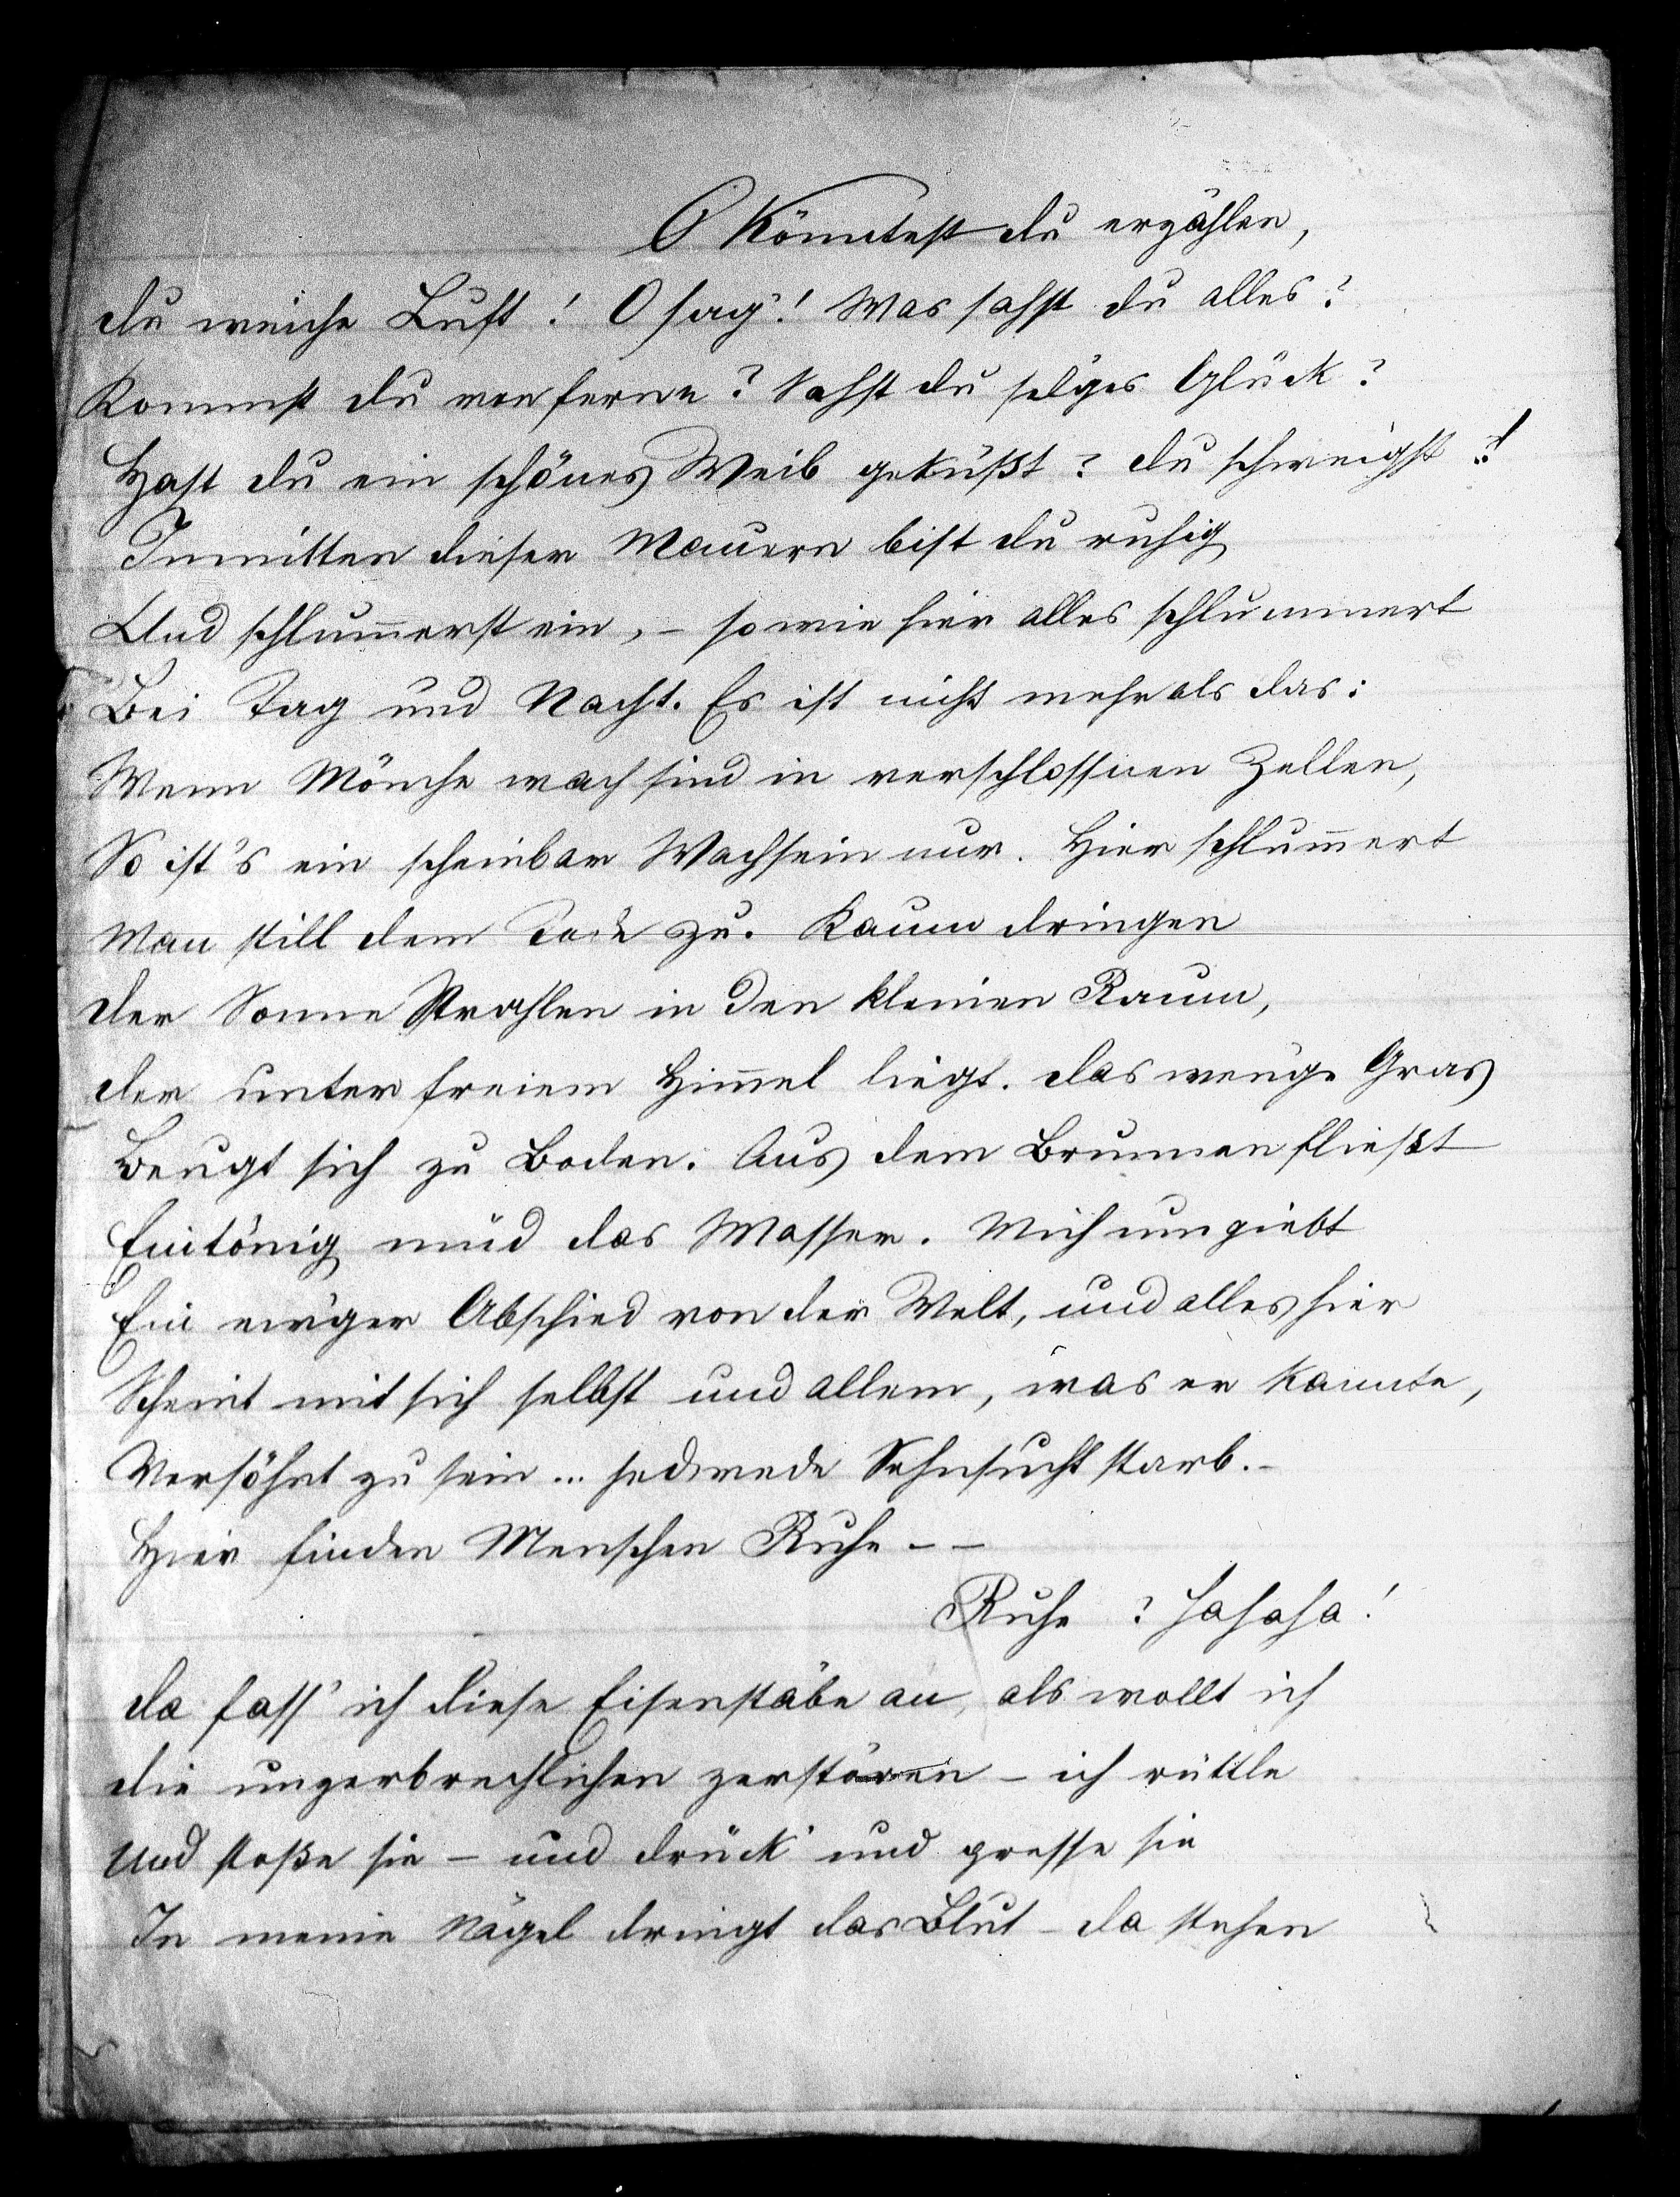 O könntest du erzählen,
du weiche Luft! O sag'! Was sahst du alles?
Kommst du von ferne? Sahst du sel'ges Glück?
Hast du ein schönes Weib geküßt? du schweigst?!
Inmitten dieser Mauern bist du ruhig
Und schlum̄erst ein, – so wie hier alles schlummert
Bei Tag und Nacht. Es ist nicht mehr als das:
Wenn Mönche wach sind in verschlossnen Zellen,
So ist's ein scheinbar Wachsein nur. Hier schlum̄ert
Man still dem Tode zu. Kaum dringen
der Sonne Strahlen in den kleinen Raum,
der unter freiem Him̄el liegt. das wen'ge Gras
Beugt sich zu Boden. Aus dem Brunnen fließt
Eintönig müd das Wasser. Mich umgiebt
Ein ew'ger Abschied von der Welt, und alles hier
Scheint mit sich selbst und allem, was er kannte,
Versöhnt zu sein ... jedwede Sehnsucht starb. –
Hier finden Menschen Ruhe – –
Ruhe ? hahaha!
da fass' ich diese Eisenstäbe an, als wollt ich
die unzerbrechlichen zerstören – ich rüttle
und stoße sie – und drück' und presse sie
In meine Nägel dringt das Blut – da stehen